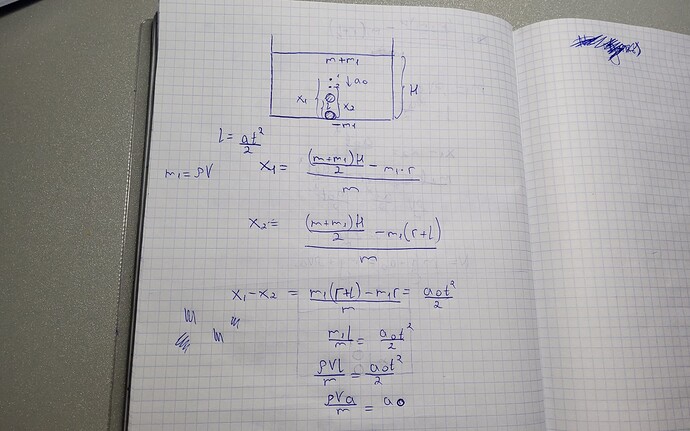 m+m₁
x₁ ↓a₀ H
l x₂
−m₁
l = at²/2
m₁ = ρV x₁ = ((m+m₁)H/2 − m₁·r)/m
x₂ = ((m+m₁)H/2 − m₁(r+l))/m
x₁−x₂ = (m₁(r+l)−m₁r)/m = a₀t²/2
m₁l/m = a₀t²/2
ρVl/m = a₀t²/2
ρVa/m = a₀